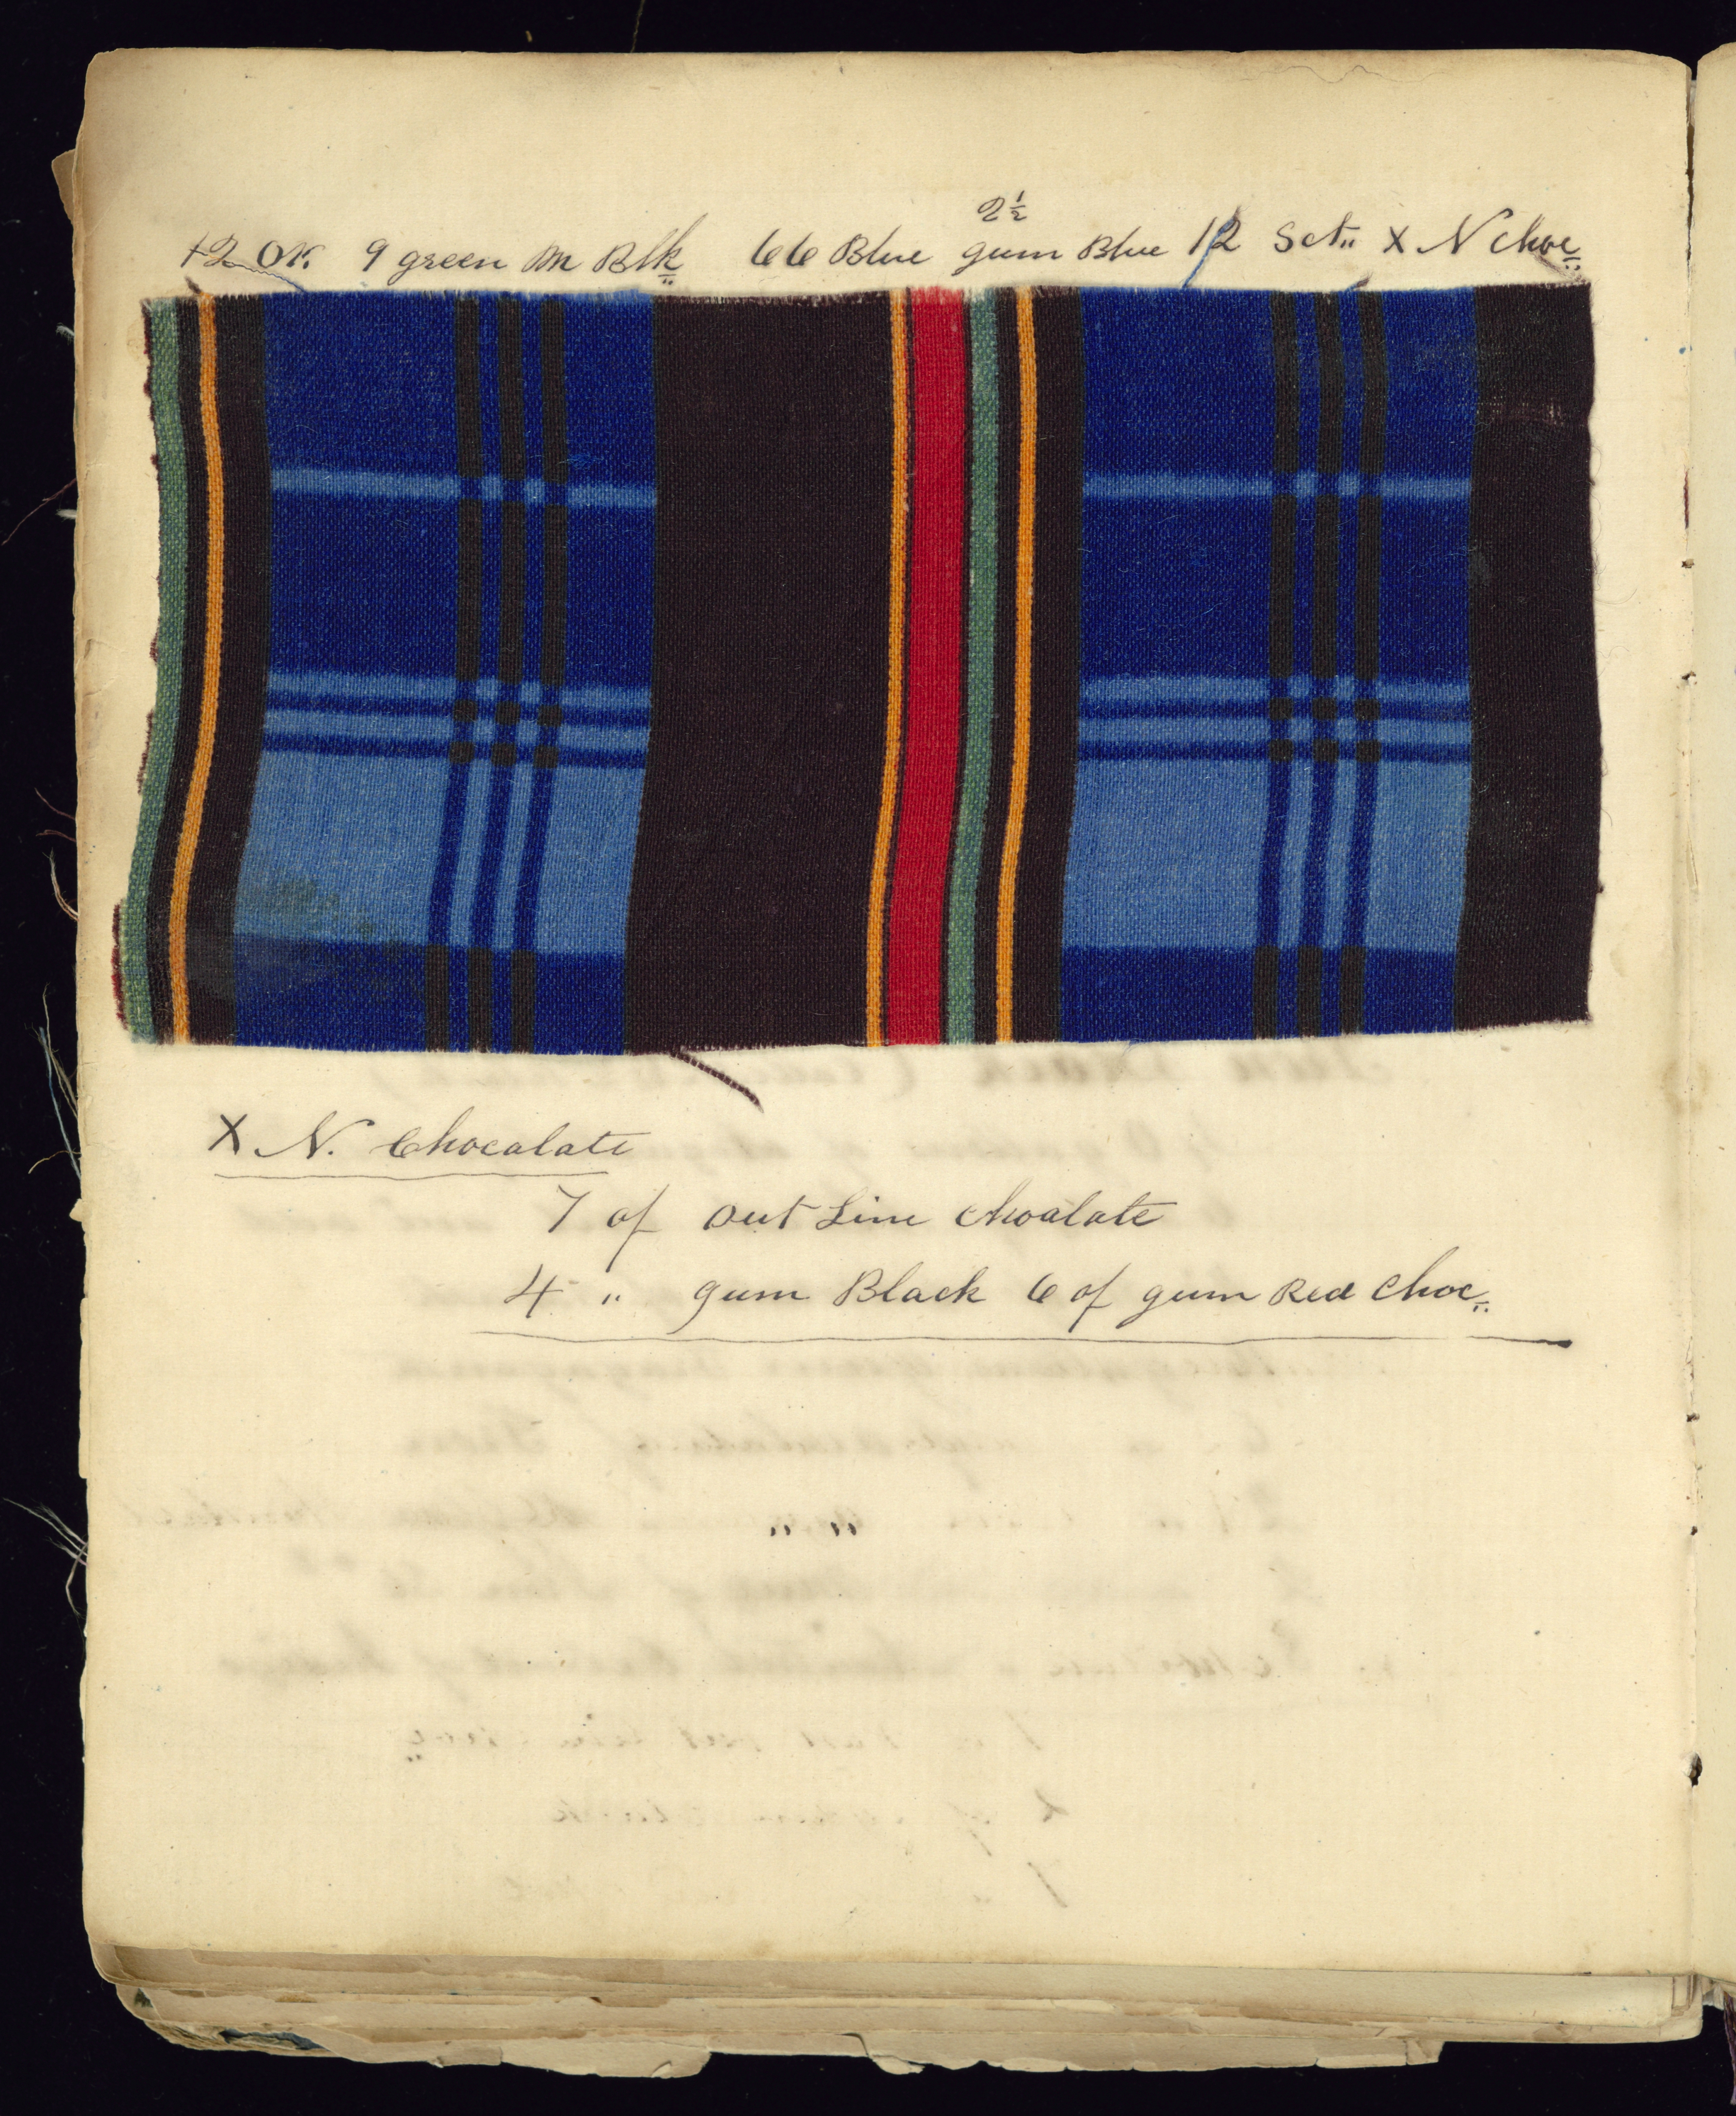 2½
12 Or. 9 green M Blk 66 Blue gum Blue 12 Sct,, X N Choc
X N. Chocalate
7 of out Line chocalate
4 " gum Black 6 of gum Red Choc